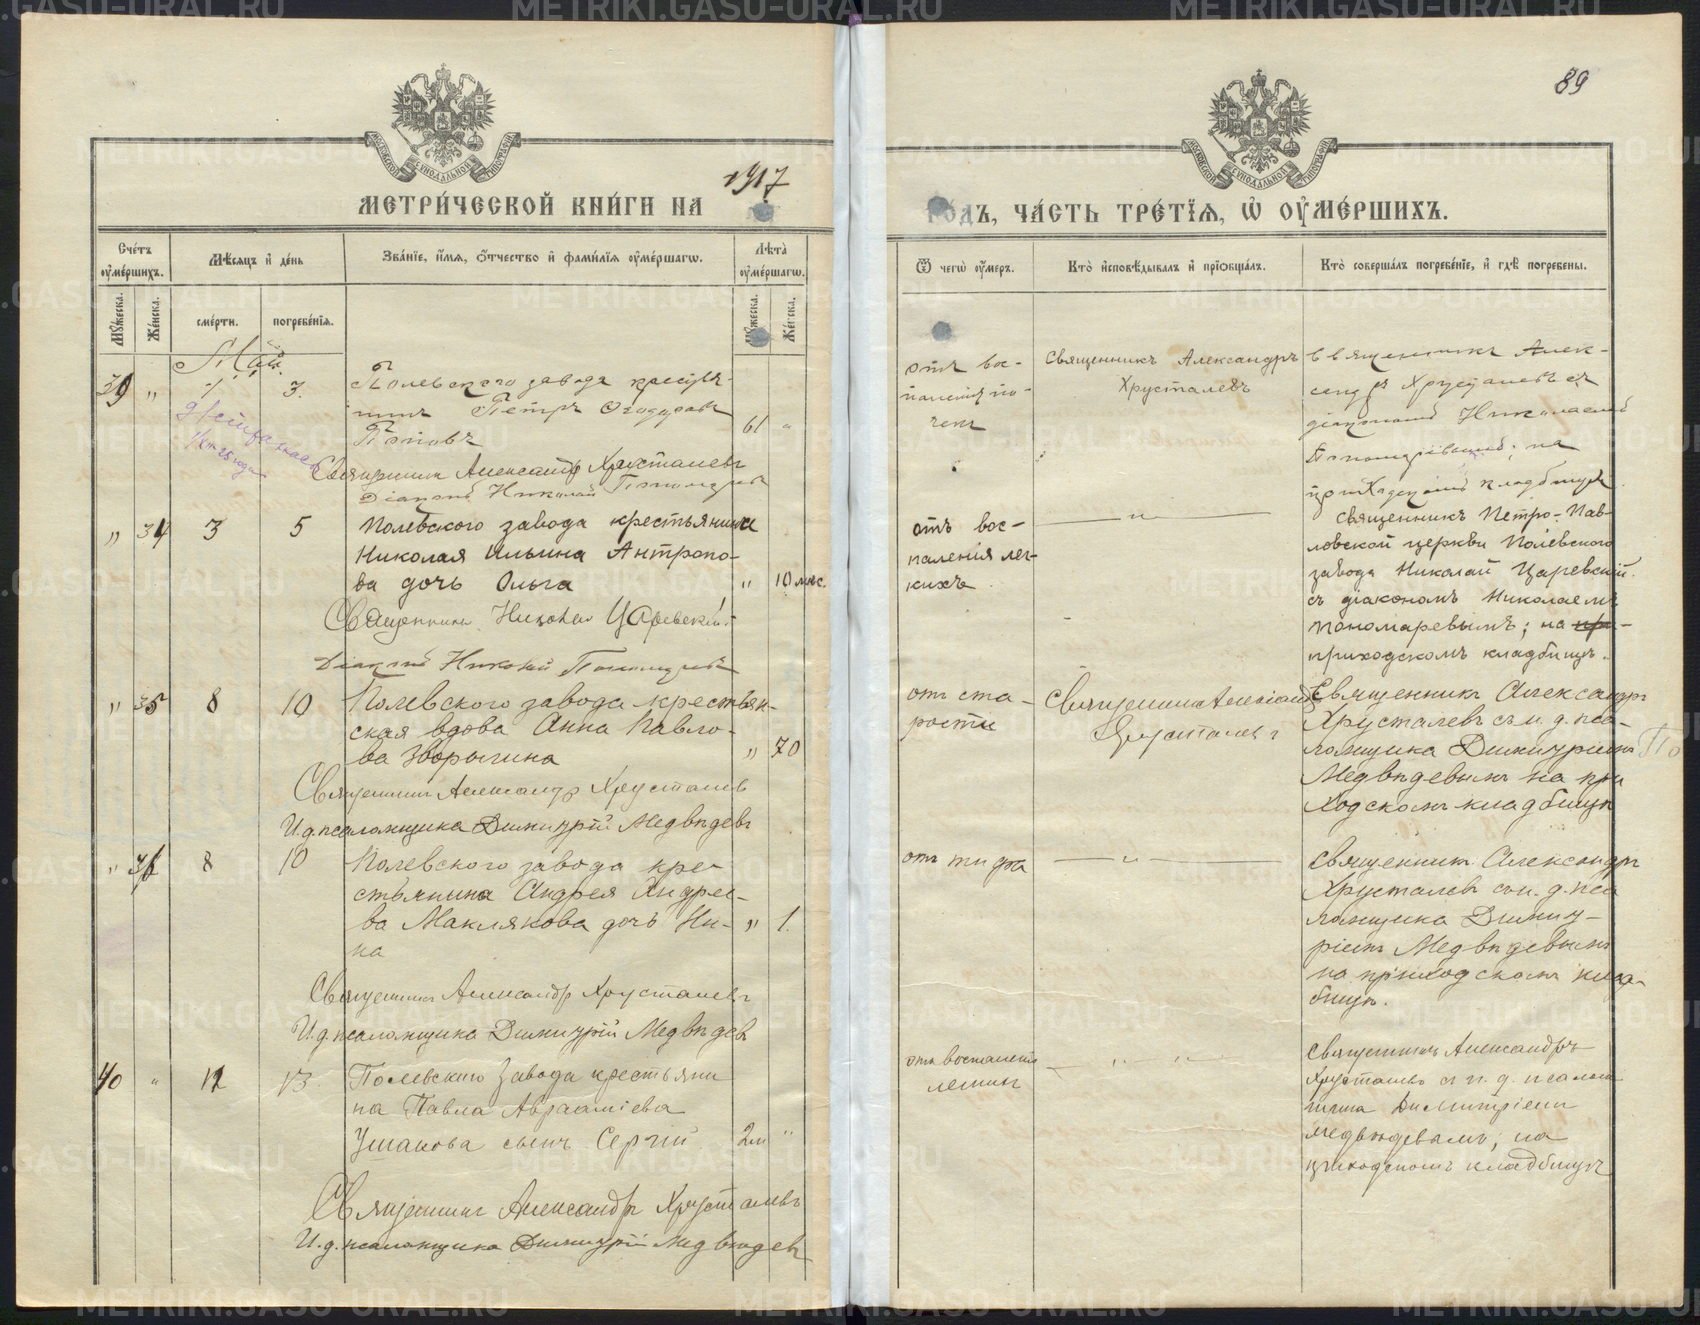 89
1917
МЕТРИ́ЧЕСКОЙ КНИ́ГИ НА
ГО́ДЪ, ЧА́СТЬ ТРЕ́ТЇѦ, Ѡ҆ ОУ҆МЕ́РШИХЪ.
Сче́тъ оу҆ме́ршихъ.
Мѣ́сѧцъ и҆ де́нь
Зва́нїе, и҆́мѧ, ѻ҆́тчество и҆ фами́лїѧ оу҆ме́ршагѡ.
Лѣ́та оу҆ме́ршагѡ.
Ѿ чегѡ̀ оу҆́меръ.
Кто̀ и҆сповѣ́дывалъ и҆ прїѡбща́лъ.
Кто̀ соверша́лъ погребе́нїе, и҆ гдѣ̀ погребены.
Му́жеска.
Же́нска.
сме́рти.
погребе́нїѧ.
Му́жеска.
Же́нска.
Май.
39 " 1 3.
Полевскаго завода крестья-
нинъ Петръ
Поповъ
61 "
Священникъ Александръ Хрусталевъ
Діаконъ Николай Пономаревъ
отъ вос-
паленія по-
чекъ
Священникъ Александръ
Хрусталевъ
Священникъ Алек-
сандръ Хрусталевъ съ
діакономъ Николаемъ
Пономаревымъ; на
приходскомъ кладбищѣ.
" 34 3 5
Полевского завода крестьянина
Николая Ильина Антропо-
ва дочь Ольга
" 10 мѣс.
Священникъ Николай Царевскій
Діаконъ Николай Пономаревъ
отъ вос-
паленія лег-
кихъ
— " —
Священникъ Петро-Пав-
ловской церкви Полевского
завода Николай Царевскій
съ діакономъ Николаемъ
Пономаревымъ; на при-
приходскомъ кладбищѣ.
" 35 8 10
Полевского завода крестьян-
ская вдова Анна Павло-
ва Зворыгина
" 70
Священникъ Александръ Хрусталевъ
И.д. псаломщика Димитрій Медвѣдевъ
отъ ста-
рости
Священникъ Александръ
Хрусталевъ
Священникъ Александръ
Хрусталевъ съ и.д. пса-
ломщика Димитріемъ
Медвѣдевымъ на при
ходскомъ кладбищѣ
" 36 8 10
Полевского завода кре-
стьянина Андрея Андрее-
ва Маклякова дочь Ни-
на
" 1.
Священникъ Александръ Хрусталевъ
И.д. псаломщика Димитрій Медвѣдевъ
отъ тифа
— " —
Священникъ Александръ
Хрусталевъ съ и.д. пса
ломщика Димит-
ріемъ Медвѣдевымъ
на приходскомъ клад-
бищѣ.
40 " 12 13
Полевского завода крестьяни
на Павла Авраамiева
Ушакова сынъ Сергій
2 м "
Священникъ Александръ Хрусталевъ
И.д. псаломщика Димитрій Медвѣдевъ
отъ воспаленія
легкихъ
— " — " —
Священникъ Александръ
Хрусталевъ съ и.д. псалом
щика Димитріемъ
Медвѣдевымъ; на
приходскомъ кладбищѣ